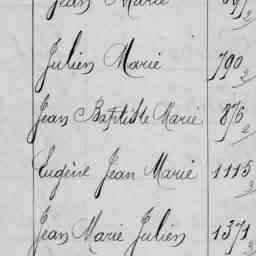 Jean Marie
Julien Marie 790 2
Jean Baptiste Marie 876 2
Eugène Jean Marie 1115 3
Jean Marie Julien 1371 3